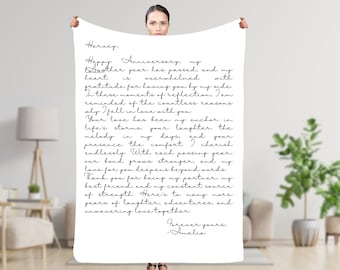 Harvey,
Happy Anniversary, my
Another year has passed, and my
heart is overwhelmed with
gratitude for having you by my side.
In these moments of reflection, I am
reminded of the countless reasons
why I fell in love with you.
Your love has been my anchor in
life's storms, your laughter the
melody in my days, and your
presence the comfort I cherish
endlessly. With each passing year,
our bond grows stronger, and my
love for you deepens beyond words.
Thank you for being my partner, my
best friend, and my constant source
of strength. Here's to many more
years of laughter, adventures, and
unwavering love together.
Forever yours,
Amelia